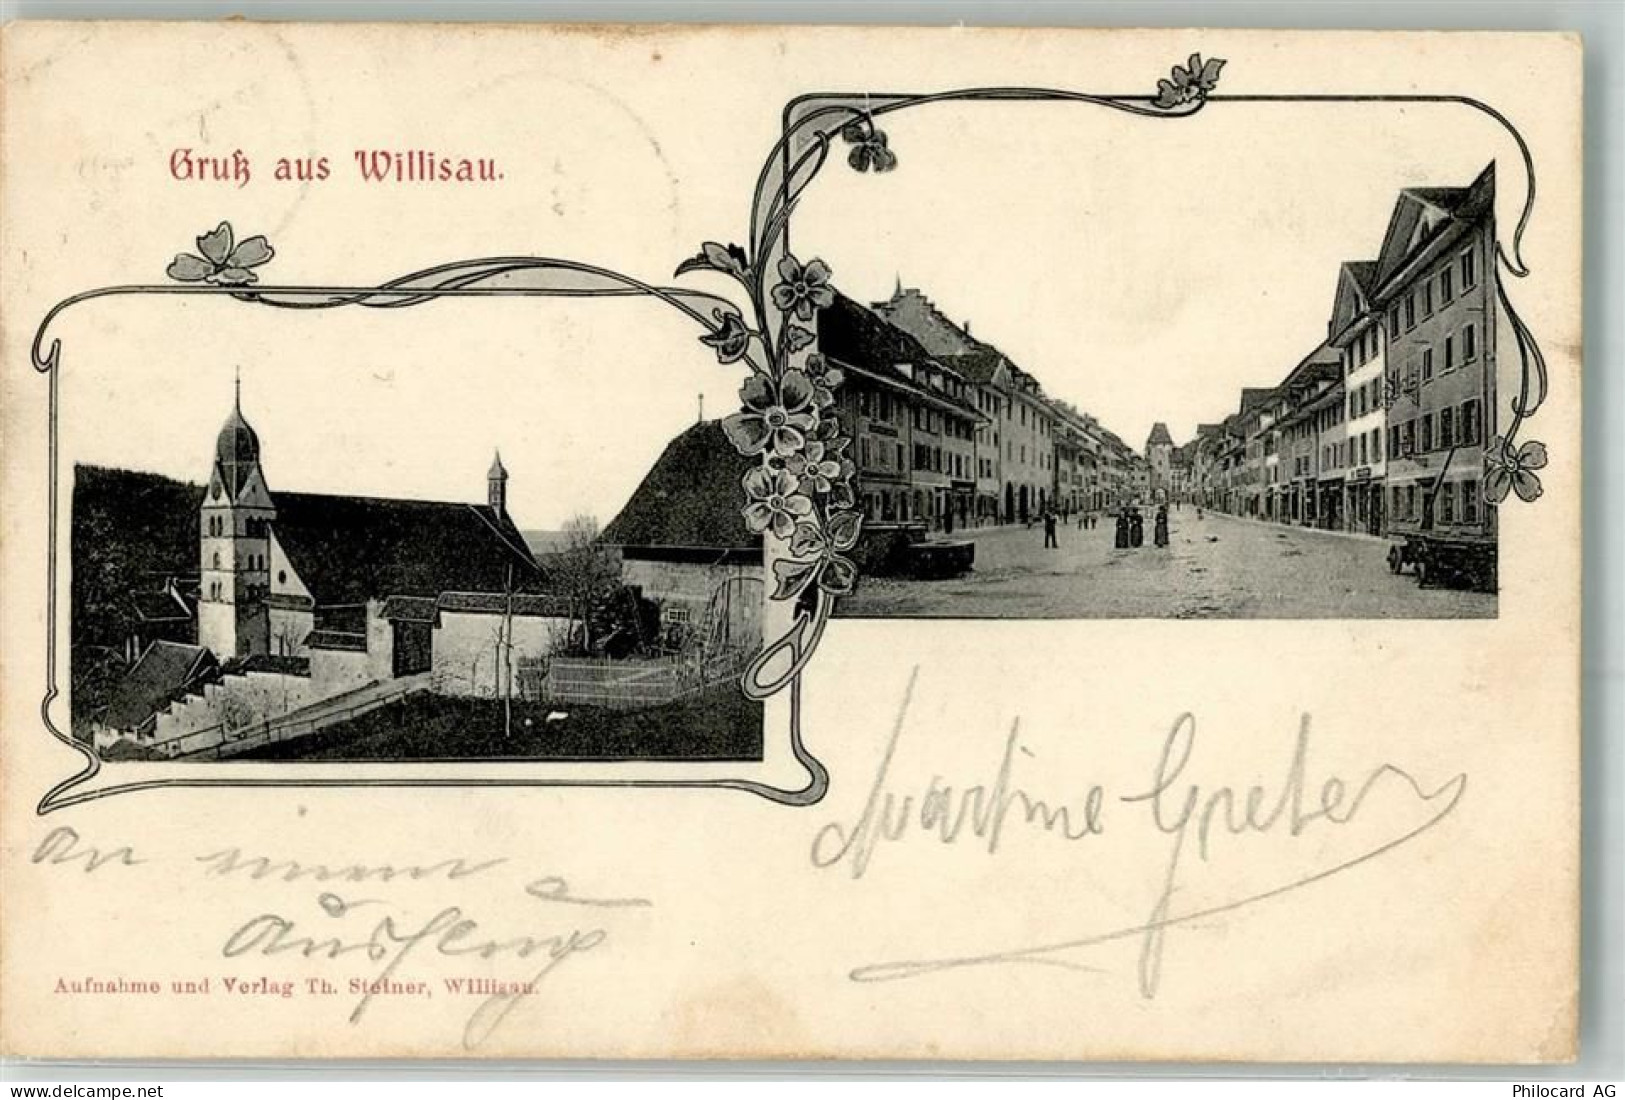 Gruß aus Willisau.
an einem
Ausflug
Martine Greter
Aufnahme und Verlag Th. Steiner, Willisau.
www.delcampe.net
Philocard AG